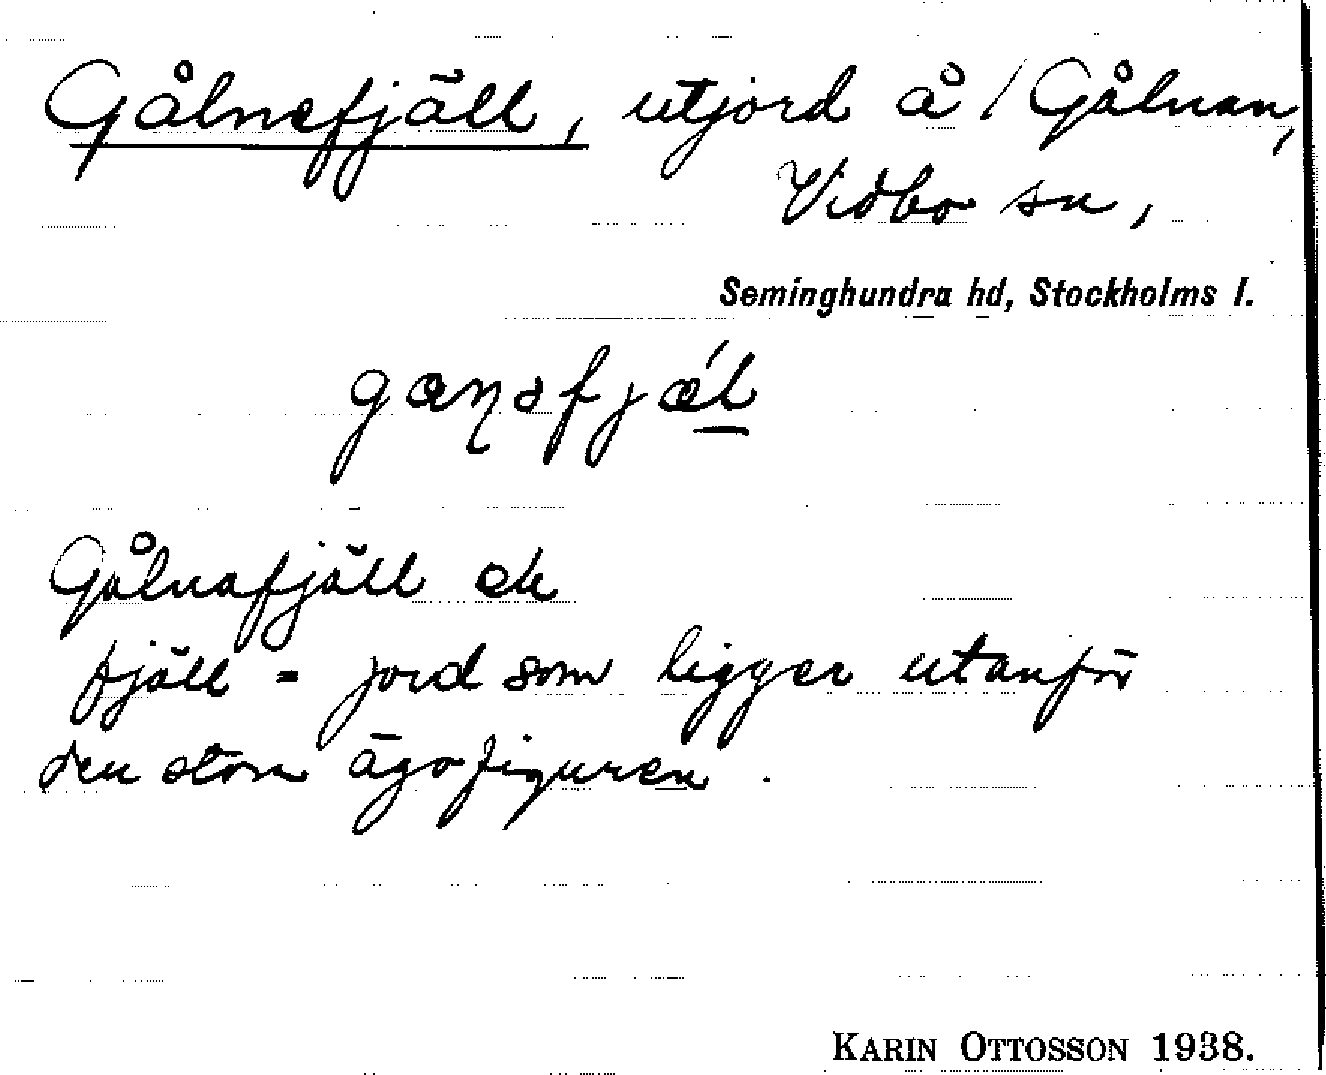 Gålnefjäll, utjord å / Gålnan,
Vidbo sn,
Seminghundra hd, Stockholms l.
gɶηəfjǽl
Gålnafjäll ek
fjäll = jord som ligger utanför
den stora ägofiguren.
KARIN OTTOSSON 1938.